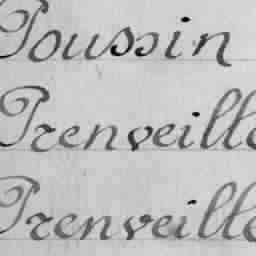 Poussin
Prenveille
Prenveille